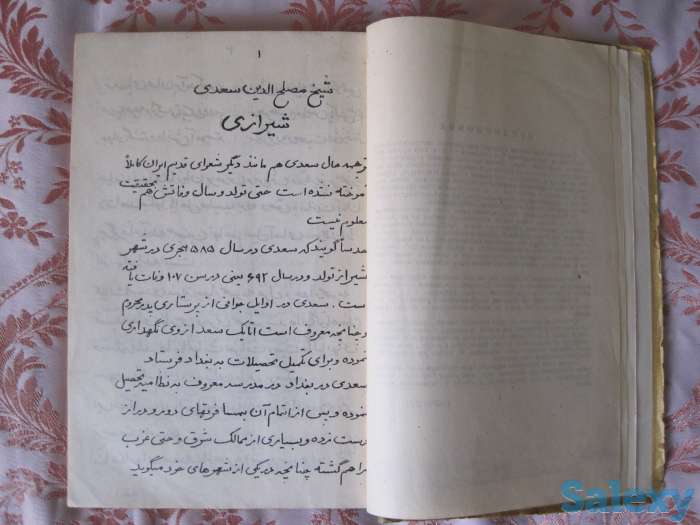 ۱
شیخ مصلح الدین سعدی
شیرازی
ترجمه حال سعدی هم مانند دیگر شعرای قدیم ایران کاملاً
آموخته نشده است حتی تولد و سال وفاتش هم بحقیقت
معلوم نیست
حدساً گویند که سعدی در سال ۵۸۵ هجری در شهر
شیراز تولد و در سال ۶۹۲ یعنی در سن ۱۰۷ وفات یافته
است. سعدی در اوایل جوانی از پرستاری پدر محروم
و چنانچه معروف است اتابک سعد از وی نگهداری
نموده و برای تکمیل تحصیلات به بغداد فرستاد
سعدی در بغداد در مدرسه معروف به نظامیه تحصیل
نموده و پس از اتمام آن بمسافرتهای دور و دراز
دست زده و بسیاری از ممالک شرق و حتی غرب
را هم گشته چنانچه در یکی از شهرهای خود میگوید
Salexy